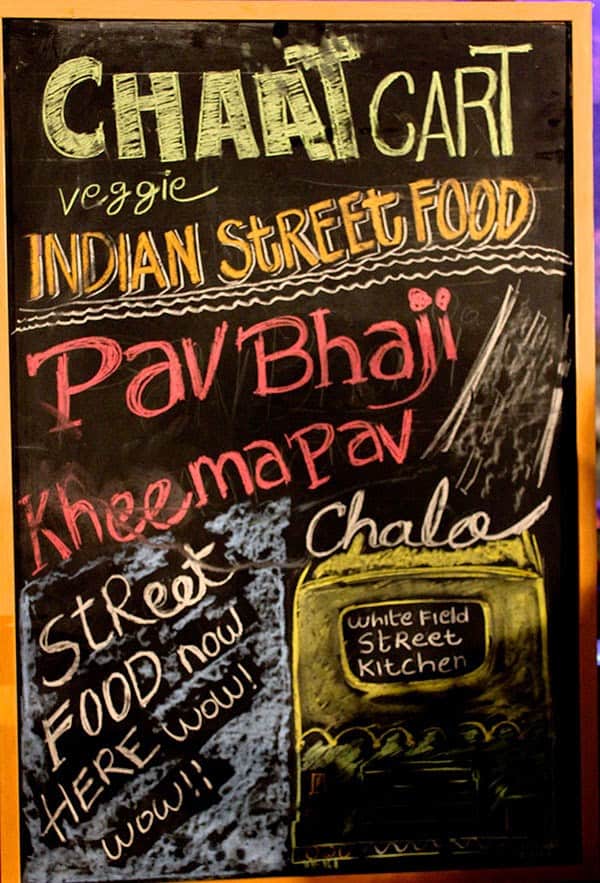 CHAAT CART
veggie
INDIAN StREEt FOOD
Pav Bhaji
Kheema Pav
Chalo
White Field
StReet
Kitchen
StReet
FOOD now
HERE wow!
wow!!